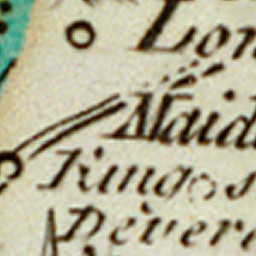 Lon
Maid
Kings
Devere